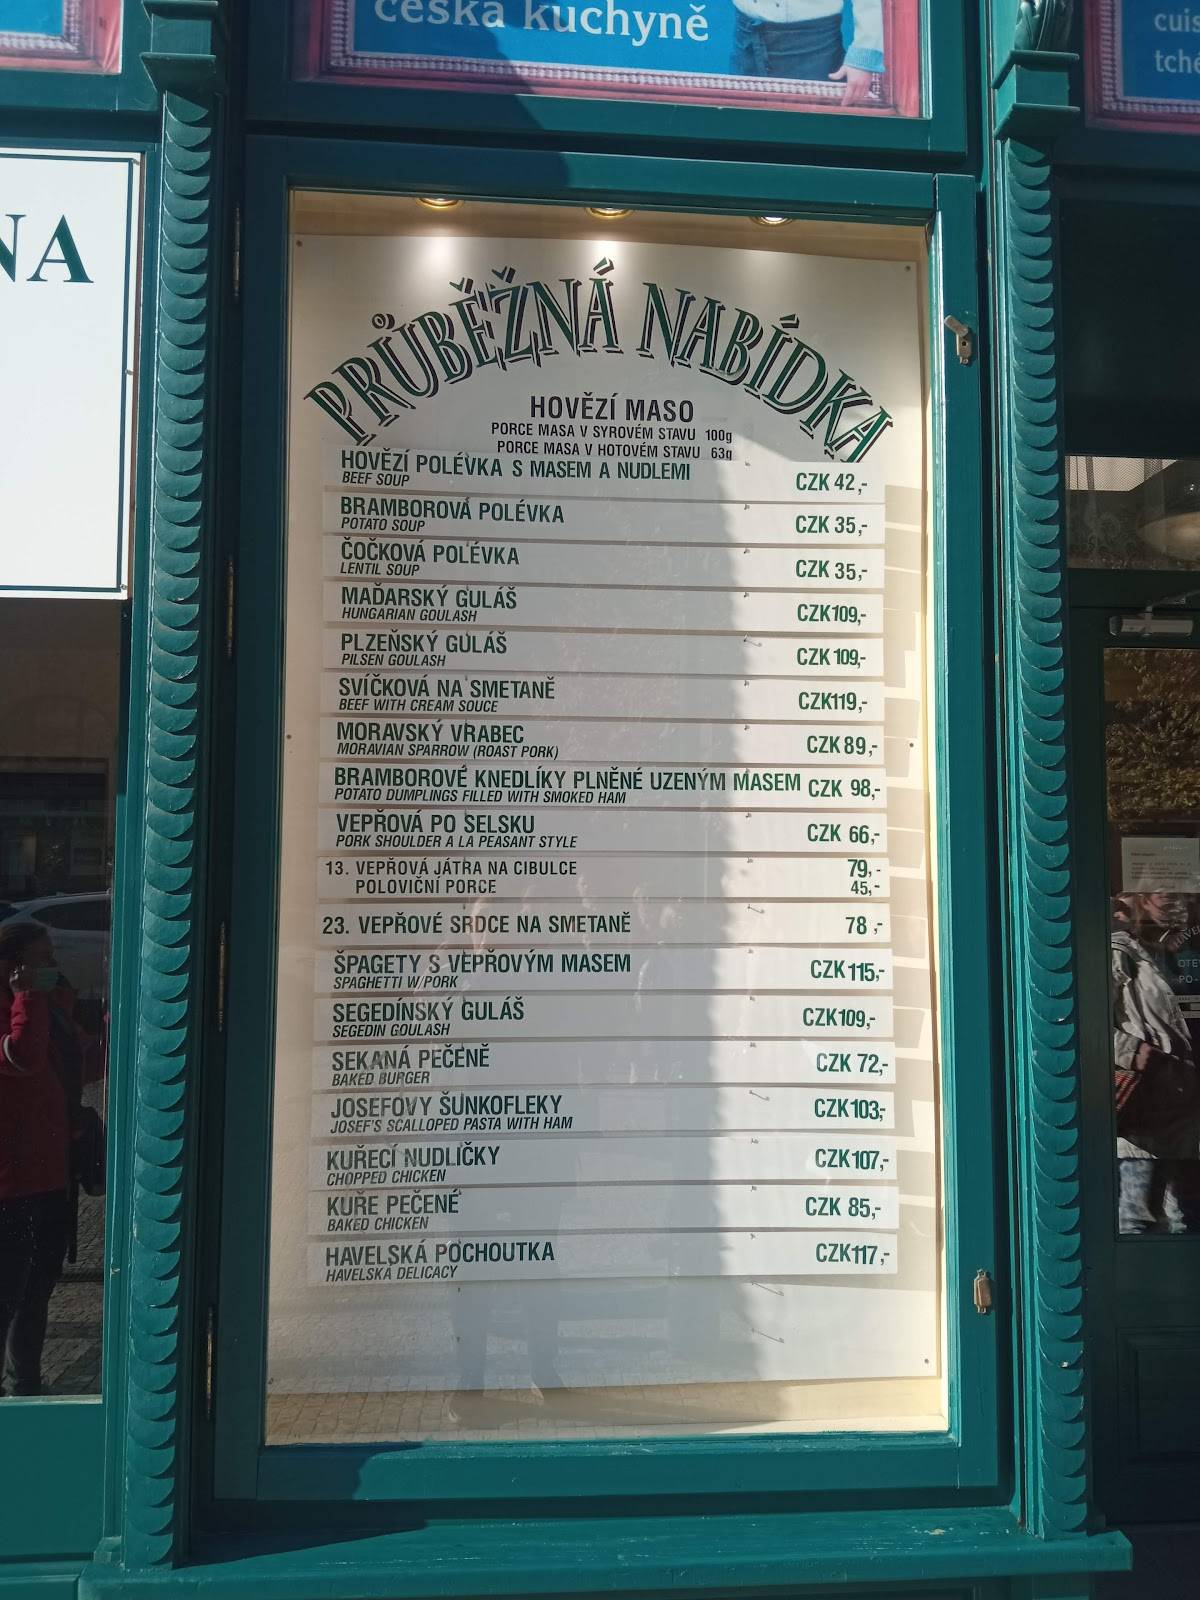 česká kuchyně
cuis
tché
NA
PRŮBĚŽNÁ NABÍDKA
HOVĚZÍ MASO
PORCE MASA V SYROVÉM STAVU 100g
PORCE MASA V HOTOVÉM STAVU 63g
HOVĚZÍ POLÉVKA S MASEM A NUDLEMI CZK 42,-
BEEF SOUP
BRAMBOROVÁ POLÉVKA CZK 35,-
POTATO SOUP
ČOČKOVÁ POLÉVKA CZK 35,-
LENTIL SOUP
MAĎARSKÝ GULÁŠ CZK109,-
HUNGARIAN GOULASH
PLZEŇSKÝ GULÁŠ CZK 109,-
PILSEN GOULASH
SVÍČKOVÁ NA SMETANĚ CZK119,-
BEEF WITH CREAM SOUCE
MORAVSKÝ VRABEC CZK 89,-
MORAVIAN SPARROW (ROAST PORK)
BRAMBOROVÉ KNEDLÍKY PLNĚNÉ UZENÝM MASEM CZK 98,-
POTATO DUMPLINGS FILLED WITH SMOKED HAM
VEPŘOVÁ PO SELSKU CZK 66,-
PORK SHOULDER A LA PEASANT STYLE
13. VEPŘOVÁ JÁTRA NA CIBULCE 79,-
POLOVIČNÍ PORCE 45,-
23. VEPŘOVÉ SRDCE NA SMETANĚ 78,-
ŠPAGETY S VEPŘOVÝM MASEM CZK115,-
SPAGHETTI W/PORK
SEGEDÍNSKÝ GULÁŠ CZK109,-
SEGEDIN GOULASH
SEKANÁ PEČENĚ CZK 72,-
BAKED BURGER
JOSEFOVY ŠUNKOFLEKY CZK103,-
JOSEF'S SCALLOPED PASTA WITH HAM
KUŘECÍ NUDLIČKY CZK107,-
CHOPPED CHICKEN
KUŘE PEČENÉ CZK 85,-
BAKED CHICKEN
HAVELSKÁ POCHOUTKA CZK117,-
HAVELSKÁ DELICACY